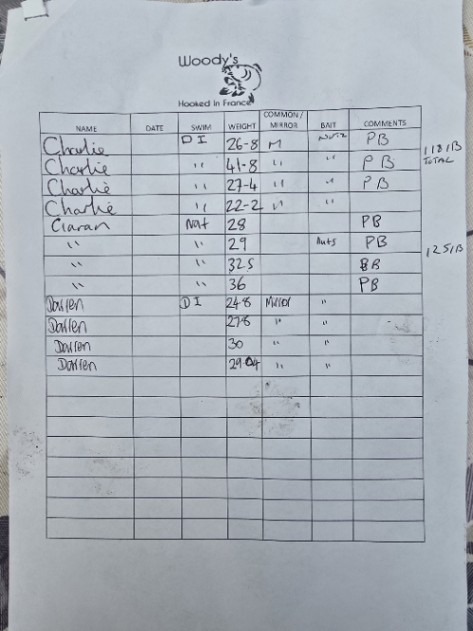 Woody's
Hooked In France
NAME DATE SWIM WEIGHT COMMON/MIRROR BAIT COMMENTS
Charlie DI 26-8 M PB
118lB TOTAL
Charlie " 41-8 " " PB
Charlie " 27-4 " " PB
Charlie " 22-2 " "
Ciaran Nat 28 PB
" " 29 Nuts PB
125lB
" " 32 5
" " 36 PB
Darren DI 24 8 Mirror "
Darren 27 8 " "
Darren 30 " "
Darren " "